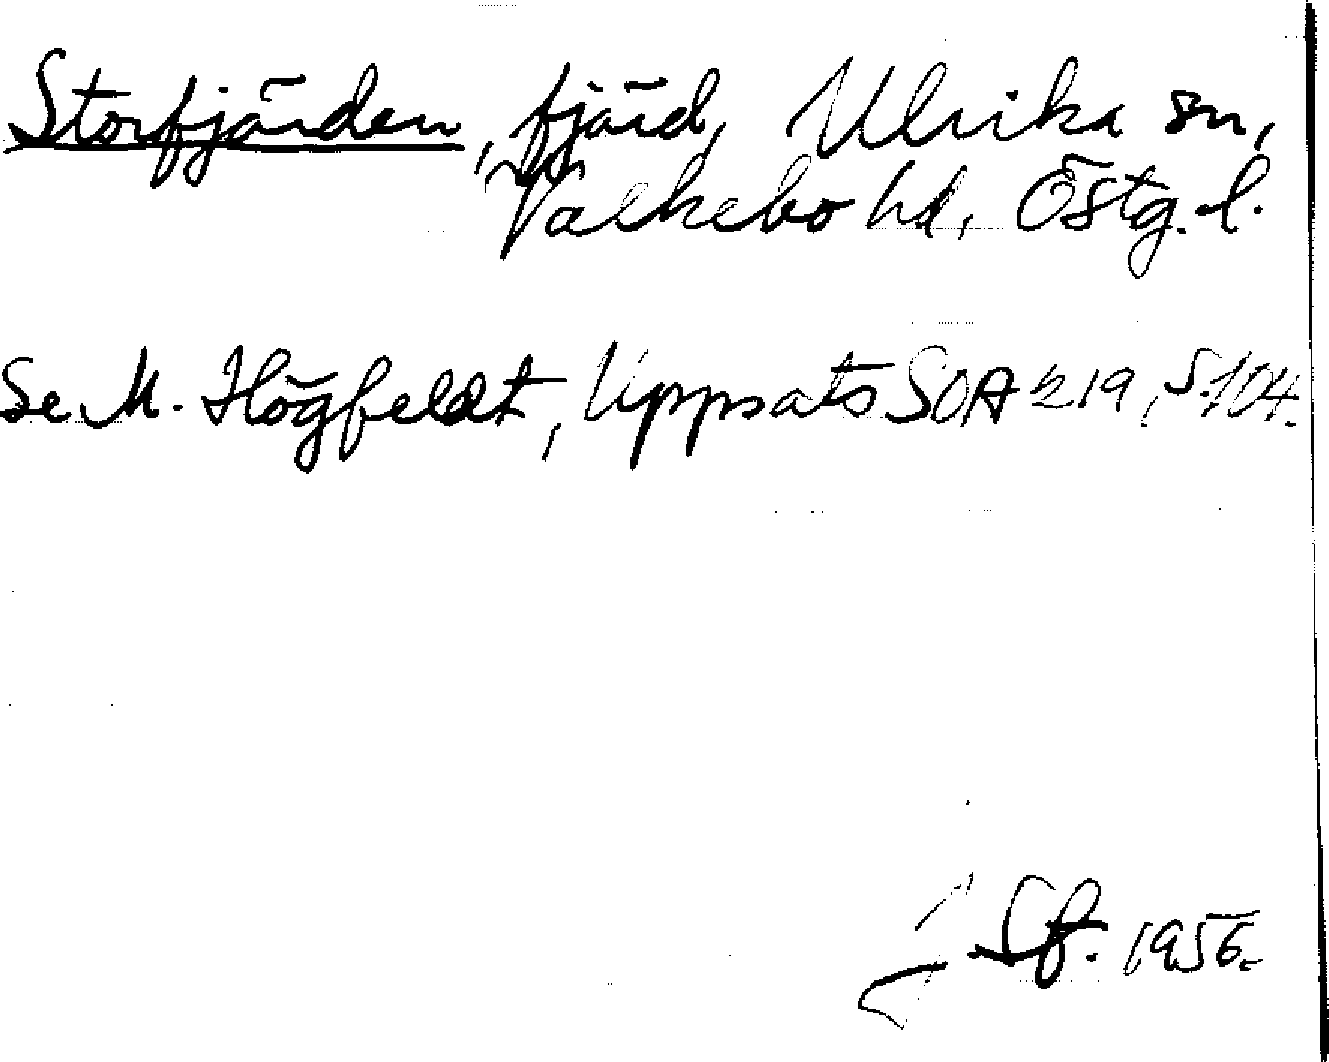 Storfjärden, fjärd, Ulrika sn,
Valkebo hd, Östg. l.
Se M. Högfeldt, Uppsats SOA 219, s. 104.
J Sf. 1956.